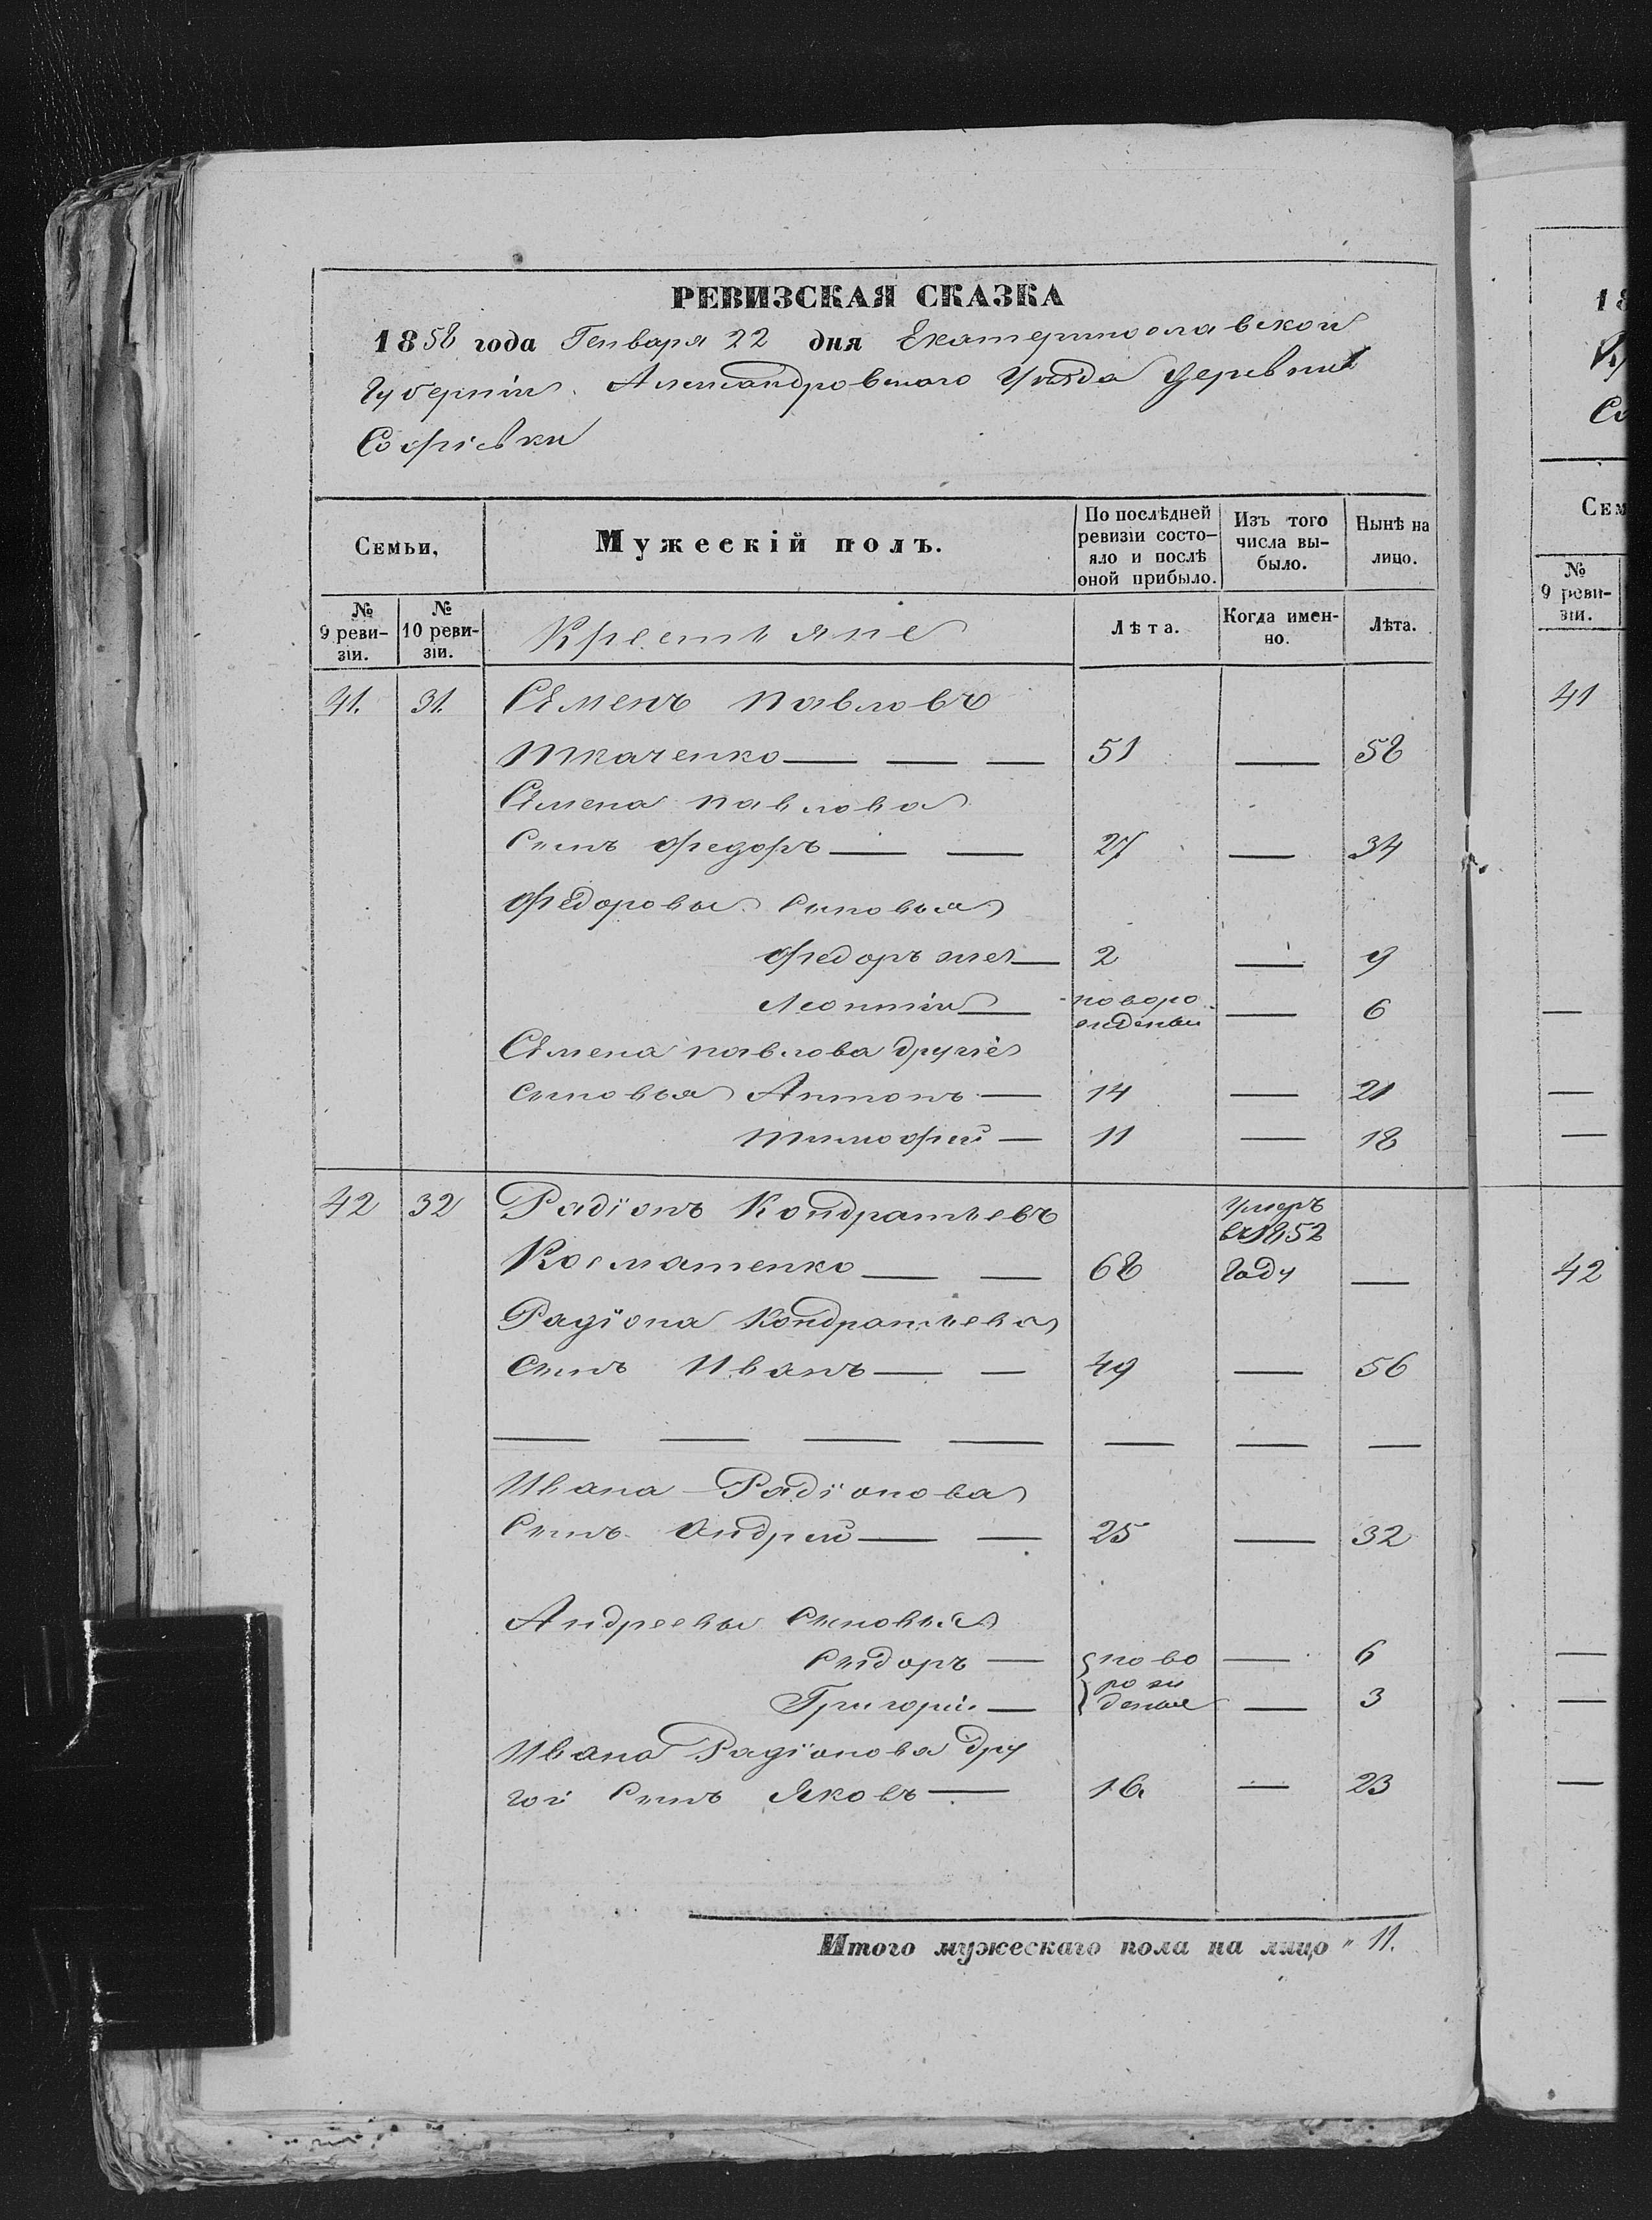 РЕВИЗСКАЯ СКАЗКА
1858 года Генваря 22 дня Екатеринославской
Губерніи Александровскаго Уѣзда Деревни
Софіевки
Семьи, Мужескій полъ. По послѣдней ревизіи состо-яло и послѣ оной прибыло. Изъ того числа вы-было. Нынѣ на лицо.
№ 9 реви-зіи. № 10 реви-зіи. Крестьяне Лѣта. Когда имен-но. Лѣта.
41. 31. Семенъ Павловъ
Ткаченко — — — 51 — 58
Семена Павлова
Сынъ Федоръ — — 27 — 34
Федоровы Сыновья
Федоръ же — 2 — 9
Леонтій — новоро жденный — 6
Семена Павлова другіе
сыновья Антонъ — 14 — 21
Тимофей — 11 — 18
42 32 Радіонъ Кондратьевъ Умеръ
в 1852
Косматенко — — 68 Году —
Радіона Кондратьева
Сынъ Иванъ — — 49 — 56
— — — — — — —
Ивана Радіонова
Сынъ Андрей — — 25 — 32
Андреевы Сыновья
Сидоръ — ново — 6
рож
Григорій — деные — 3
Ивана Радіонова дру
гой Сынъ Яковъ — 16 — 23
Итого мужескаго пола на лицо " 11.
18
Со
Сем
№
9 реви-
зіи.
41
—
—
—
42
—
—
—